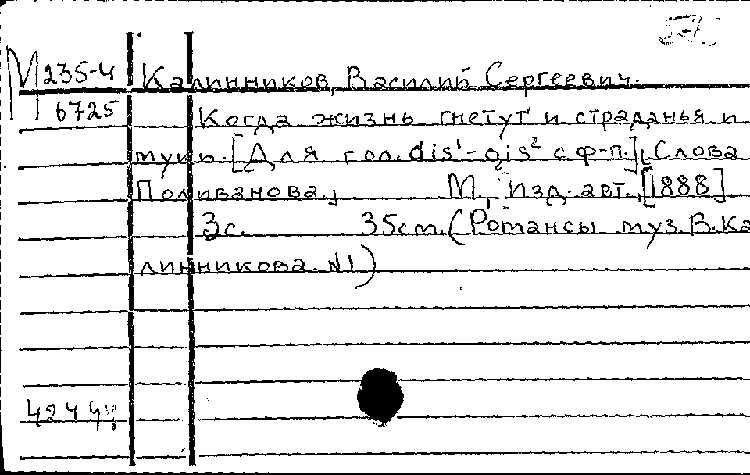 М 235-4 Калинников, Василий Сергеевич.
6725 Когда жизнь гнетут и страданья и
муки. [Для гол. dis¹-gis² с ф-п.]. Слова
Поливанова. М., Изд. авт., [1888]
3с. 35см. (Романсы муз. В. Ка
линникова. №1)